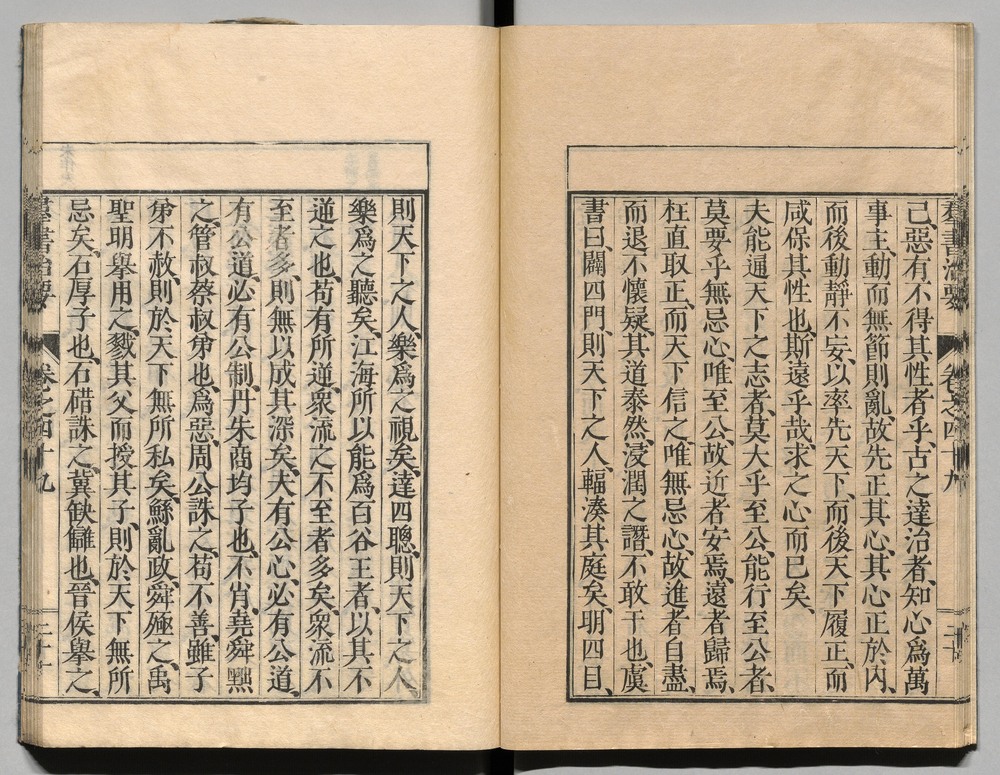 羣書治要 卷之四十九 二十
己、惡有不得其性者乎、古之達治者、知心爲萬
事主、動而無節則亂、故先正其心、其心正於內、
而後動靜不妄、以率先天下、而後天下履正、而
咸保其性也、斯遠乎哉、求之心而已矣、
夫能通天下之志者、莫大乎至公、能行至公者、
莫要乎無忌心、唯至公、故近者安焉、遠者歸焉、
枉直取正、而天下信之、唯無忌心、故進者自盡、
而退不懷疑、其道泰然、浸潤之譖、不敢干也、虞
書曰、闢四門、則天下之人、輻湊其庭矣、明四目、
則天下之人、樂爲之視矣、達四聰、則天下之人、
樂爲之聽矣、江海所以能爲百谷王者、以其不
逆之也、苟有所逆、衆流之不至者多矣、衆流不
至者多、則無以成其深矣、夫有公心、必有公道、
有公道、必有公制、丹朱商均子也、不肖、堯舜黜
之、管叔蔡叔弟也、爲惡、周公誅之、苟不善、雖子
弟不赦、則於天下無所私矣、鯀亂政、舜殛之、禹
聖明、擧用之、戮其父而授其子、則於天下無所
忌矣、石厚子也、石碏誅之、冀缺讎也、晉侯擧之、
羣書治要 卷之四十九 二十一